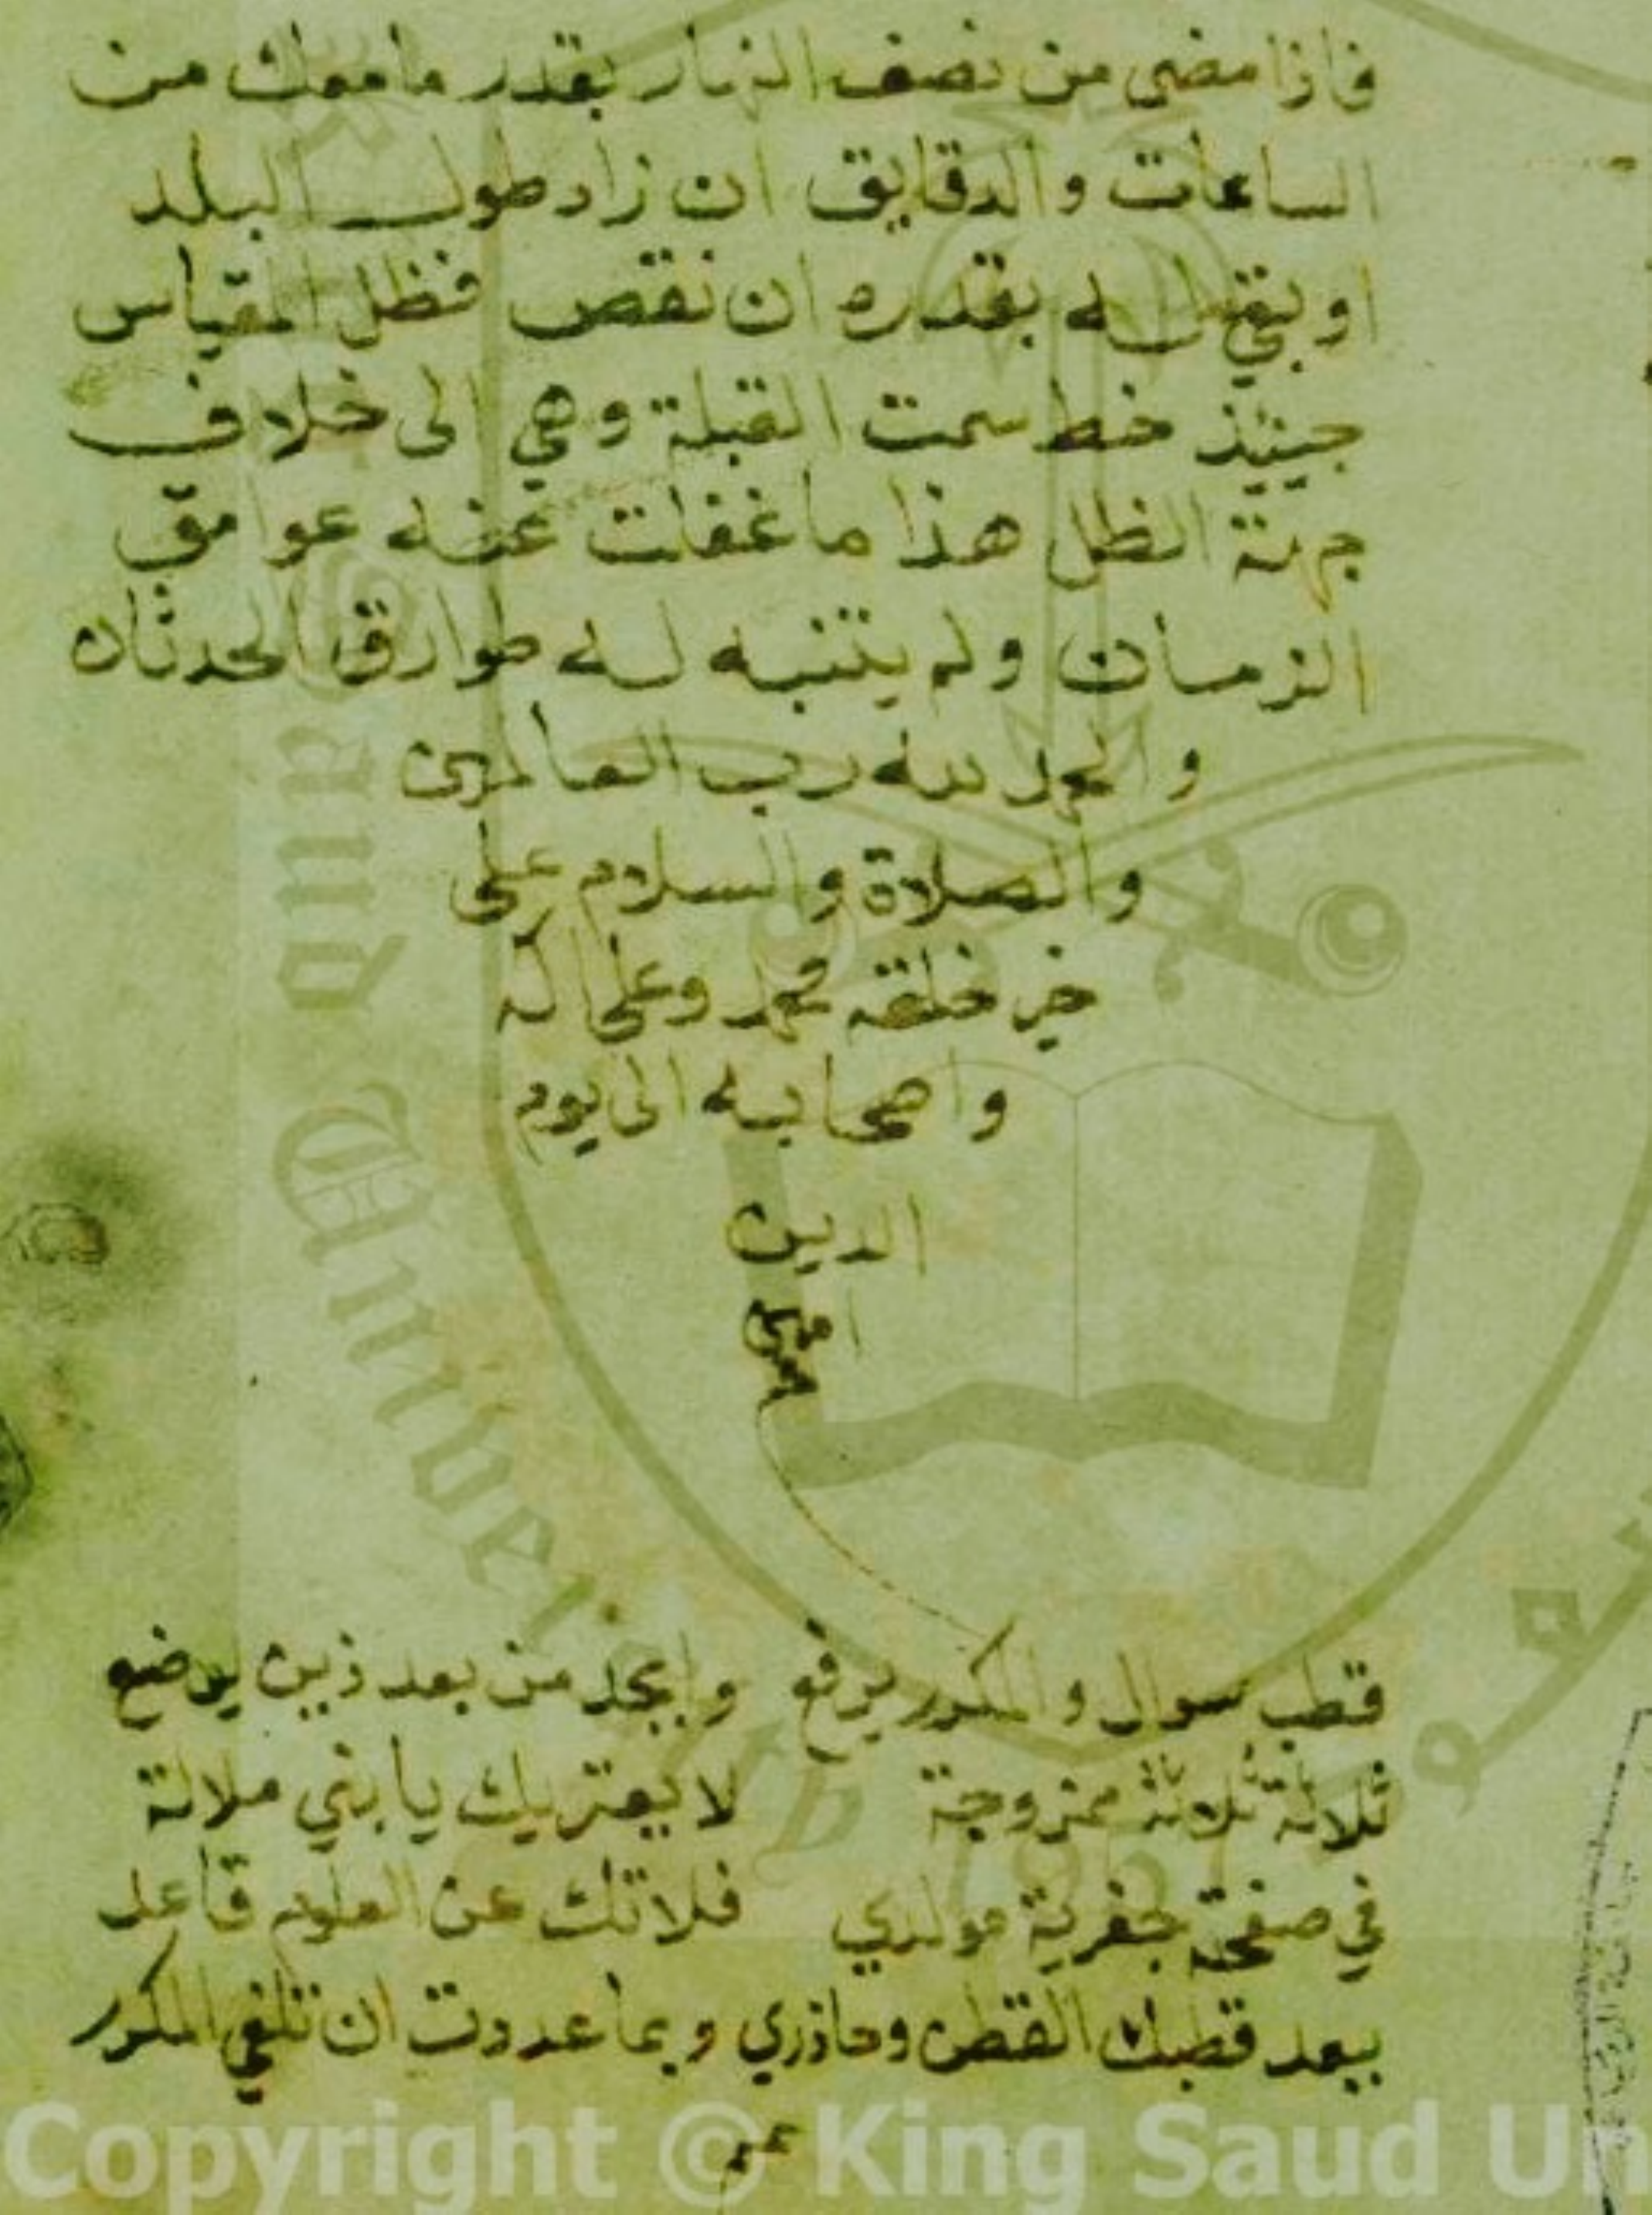 فاذا مضى من نصف النهار بقدر ما معك من
الساعات والدقايق ان زاد طول البلد
او بقي له بقدره ان نقص فظل المقياس
حينئذ خط سمت القبلة وهي الى خلاف
جهة الظل هذا ما غفلت عنه عوايق
الزمان ولم يتنبه له طوارق الحدثان
والحمد لله رب العالمين
والصلاة والسلام على
خير خلقه محمد وعلى اله
واصحابه الى يوم
الدين
امين
قطب سوال والمكرر يرفع وابجد من بعد ذين يوضع
ثلاثة ثلاثة ممزوجة لا يعتريك يا بني ملالة
في صفحة جفرية مولدي فلا تك عن العلوم قاعد
بعد قطبك القطن وحاذري وبما عددت ان تلغي المكرر
Copyright © King Saud Un